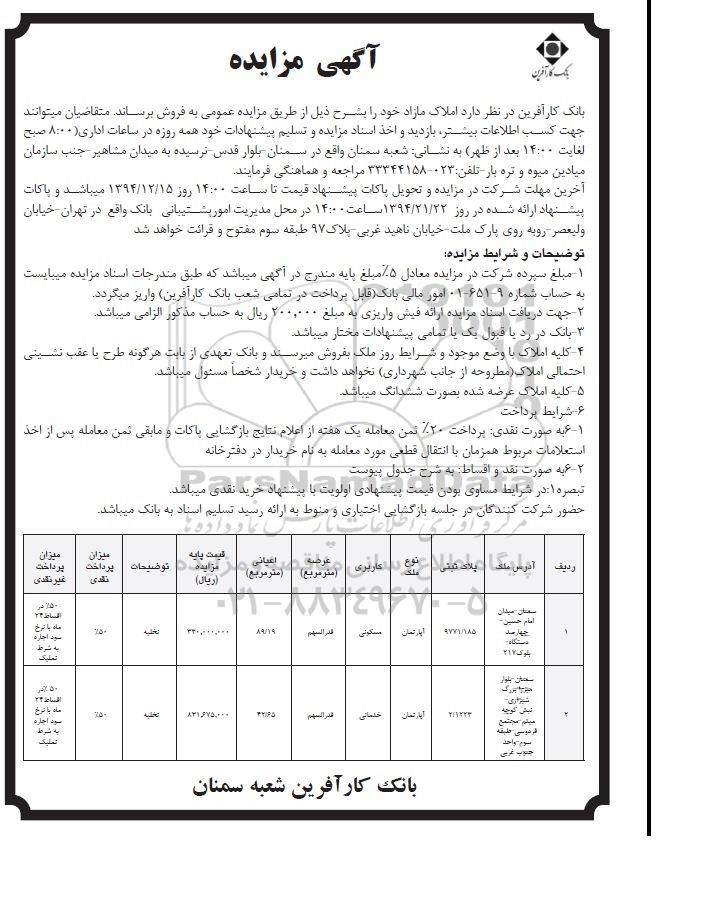 آگهی مزایده
بانک کارآفرین
بانک کارآفرین در نظر دارد املاک مازاد خود را بشرح ذیل از طریق مزایده عمومی به فروش برساند. متقاضیان میتوانند
جهت کسب اطلاعات بیشتر، بازدید و اخذ اسناد مزایده و تسلیم پیشنهادات خود همه روزه در ساعات اداری(۸:۰۰ صبح
لغایت ۱۴:۰۰ بعد از ظهر) به نشانی: شعبه سمنان واقع در سمنان-بلوار قدس-نرسیده به میدان مشاهیر-جنب سازمان
میادین میوه و تره بار-تلفن:۰۲۳-۳۳۳۴۴۱۵۸ مراجعه و هماهنگی فرمایند.
آخرین مهلت شرکت در مزایده و تحویل پاکات پیشنهاد قیمت تا ساعت ۱۴:۰۰ روز ۱۳۹۴/۱۲/۱۵ میباشد و پاکات
پیشنهاد ارائه شده در روز ۱۳۹۴/۲۱/۲۲ساعت۱۴:۰۰ در محل مدیریت امورپشتیبانی بانک واقع در تهران-خیابان
ولیعصر-روبه روی پارک ملت-خیابان ناهید غربی-پلاک۹۷ طبقه سوم مفتوح و قرائت خواهد شد
توضیحات و شرایط مزایده:
۱-مبلغ سپرده شرکت در مزایده معادل ۵٪مبلغ پایه مندرج در آگهی میباشد که طبق مندرجات اسناد مزایده میبایست
به حساب شماره ۹-۶۵۱-۰۱ امور مالی بانک(قابل پرداخت در تمامی شعب بانک کارآفرین) واریز میگردد.
۲-جهت دریافت اسناد مزایده ارائه فیش واریزی به مبلغ ۲۰۰,۰۰۰ ریال به حساب مذکور الزامی میباشد.
۳-بانک در رد یا قبول یک یا تمامی پیشنهادات مختار میباشد.
۴-کلیه املاک با وضع موجود و شرایط روز ملک بفروش میرسند و بانک تعهدی از بابت هرگونه طرح یا عقب نشینی
احتمالی املاک(مطروحه از جانب شهرداری) نخواهد داشت و خریدار شخصاً مسئول میباشد.
۵-کلیه املاک عرضه شده بصورت ششدانگ میباشد.
۶-شرایط پرداخت
۶-۱به صورت نقدی: پرداخت ۲۰٪ ثمن معامله یک هفته از اعلام نتایج بازگشایی پاکات و مابقی ثمن معامله پس از اخذ
استعلامات مربوط همزمان با انتقال قطعی مورد معامله به نام خریدار در دفترخانه
۶-۲به صورت نقد و اقساط: به شرح جدول پیوست
تبصره۱:در شرایط مساوی بودن قیمت پیشنهادی اولویت با پیشنهاد خرید نقدی میباشد.
حضور شرکت کنندگان در جلسه بازگشایی اختیاری و منوط به ارائه رسید تسلیم اسناد به بانک میباشد.
ParsNamadData
مرکز فرآوری اطلاعات پارس نماد داده ها
پایگاه اطلاع رسانی مناقصه و مزایده
۰۲۱-۸۸۳۴۹۶۷۰-۵
ردیف آدرس ملک پلاک ثبتی نوع ملک کاربری عرصه (مترمربع) اعیانی (مترمربع) قیمت پایه مزایده (ریال) توضیحات میزان پرداخت نقدی میزان پرداخت غیرنقدی
۱ سمنان-میدان امام حسین-چهارصد دستگاه-بلوک۲۱۷ ۹۷۷۱/۱۸۵ آپارتمان مسکونی قدرالسهم ۸۹/۱۹ ۳۳۰,۰۰۰,۰۰۰ تخلیه ۵۰٪ ۵۰٪ در اقساط۲۴ ماه با نرخ سود اجاره به شرط تملیک
۲ سمنان-بلوار میرزا بزرگ شیرازی-نبش کوچه میثم-مجتمع فردوسی-طبقه سوم-واحد جنوب غربی ۲/۱۲۲۳ آپارتمان خدماتی قدرالسهم ۴۲/۶۵ ۸۳۱,۶۷۵,۰۰۰ تخلیه ۵۰٪ ۵۰٪در اقساط۲۴ ماه با نرخ سود اجاره به شرط تملیک
بانک کارآفرین شعبه سمنان